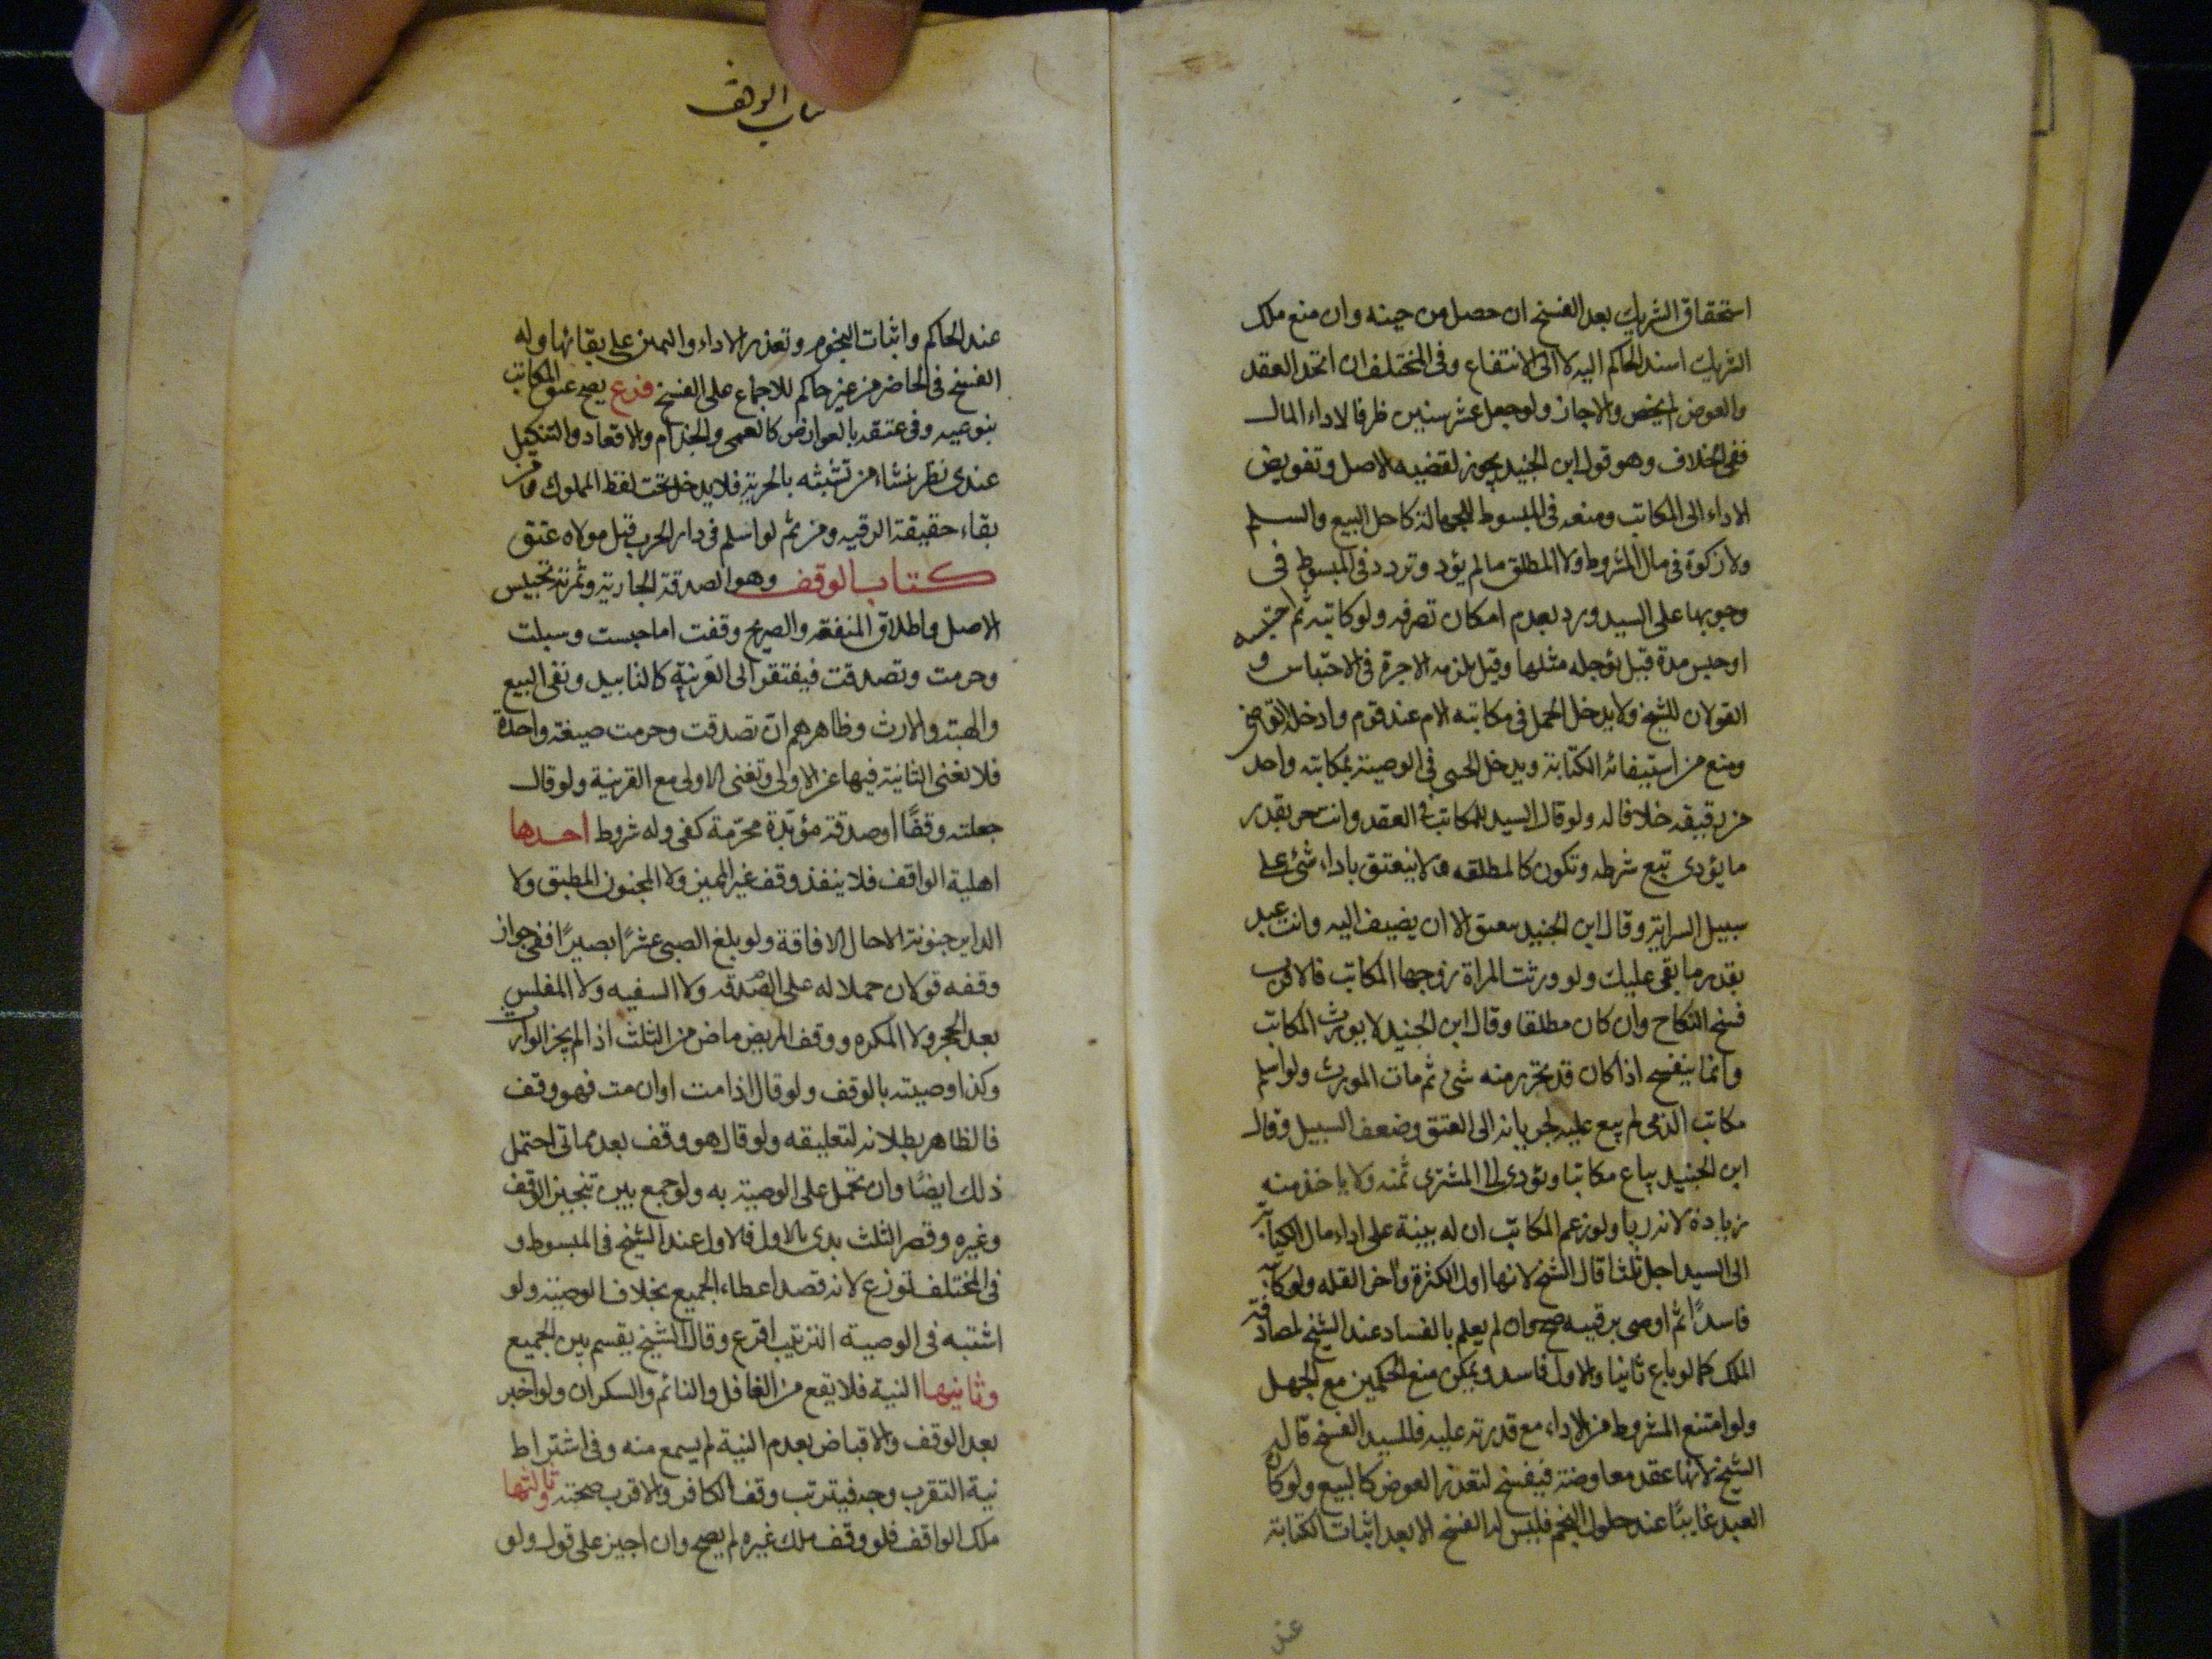 استحقاق الشريك بعد الفسخ ان حصل من حينه وان منع ملك
الشريك اسند الحاكم اليه لا الى الانتفاع وفى المختلف ان اتحد العقد
والعوض لم يخص والا جاز ولو جعل عشر سنين ظرفا لاداء المال
ففى الخلاف وهو قول ابن الجنيد يجوز لقضيه الاصل وتفويض
الاداء الى المكاتب ومنعه فى المبسوط للجهالة كاجل البيع والسلم
ولا زكوة فى مال المشروط ولا المطلق ما لم يؤد وتردد فى المبسوط فى
وجوبها على السيد ورد بعدم امكان تصرفه ولو كاتبه ثم احتبسه
او حبس مدة قيل يؤجله مثلها وقيل يلزمه الاجرة فى الاحتباس و
القولان للشيخ ولا يدخل الحمل فى مكاتبه الام عند قوم وادخله القاضى
ومنع من استيفائه الكتابة ويدخل الخنثى فى الوصية بمكاتبه واحد
من رقيقه خلافا له ولو قال السيد للمكاتب فى العقد وانت حر بقدر
ما يؤدى تبع شرطه وتكون كالمطلقه والا ينعتق باداء شئ على
سبيل السراية وقال ابن الجنيد يعتق الا ان يضيف اليه وانت عبد
بقدر ما بقى عليك ولو ورثت المراة زوجها المكاتب فالاقرب
فسخ النكاح وان كان مطلقا وقال ابن الجنيد لا يورث المكاتب
وانما ينفسخ اذا كان قد تحرر منه شئ ثم مات المورث ولو اسلم
مكاتب الذمى لم يبع عليه لجريانه الى العتق وضعف السبيل وقال
ابن الجنيد يباع مكاتبا ويؤدى الى المشترى ثمنه ولا ياخذ منه
زيادة لانه ربا ولو زعم المكاتب ان له بينة على اداء مال الكتابة
الى السيد اجل ثلثا قال الشيخ لانها اول الكثرة وآخر القله ولو كاتبه
فاسدًا ثم اوصى برقبته صح وان لم يعلم بالفساد عند الشيخ لمصادفته
الملك كما لو باع ثانيا والاول فاسد ويمكن منع الحكمين مع الجهل
ولو امتنع المشروط من الاداء مع قدرته عليه فللسيد الفسخ قاله
الشيخ لانها عقد معاوضة فيفسخ لتعذر العوض كالبيع ولو كان
العبد غايبًا عند حلول النجم فليس له الفسخ الا بعد اثبات الكتابة
عند
كتاب الوقف
عند الحاكم واثبات النجوم وتعذر الاداء واليمين على بقائها وله
الفسخ فى الحاضر من غير حاكم للاجماع على الفسخ فرع يصح عتق المكاتب
بنوعيه وفى عتقه بالعوارض كالعمى والجذام والاقعاد والتنكيل
عندى نظر ينشاء من تشبثه بالحرية فلا يدخل تحت لفظ المملوك ومن
بقاء حقيقة الرقيه ومن ثم لو اسلم فى دار الحرب قبل مولاه عتق
كتاب الوقف وهو الصدقة الجارية وثمرته تحبيس
الاصل واطلاق المنفعة والصريح وقفت اما حبست وسبلت
وحرمت وتصدقت فيفتقر الى القرينة كالتابيد ونفى البيع
والهبة والارث وظاهرهم انّ تصدقت وحرمت صيغة واحدة
فلا تغنى الثانية فيها عن الاولى وتغنى الاولى مع القرينة ولو قال
جعلته وقفًا او صدقة مؤبّدة محرّمة كفى وله شروط احدها
اهلية الواقف فلا ينفذ وقف غير المميز ولا المجنون المطبق ولا
الداير جنونه الا حال الافاقة ولو بلغ الصبى عشرًا بصيرًا ففى جواز
وقفه قولان حملا له على الصّدقه ولا السفيه ولا المفلس
بعد الحجر ولا المكره ووقف المريض ماض من الثلث اذا لم يجز الوارث
وكذا وصيته بالوقف ولو قال اذا مت او ان مت فهو وقف
فالظاهر بطلانه لتعليقه ولو قال هو وقف بعد مماتى احتمل
ذلك ايضًا وان تحمل على الوصية به ولو جمع بين تنجيز الوقف
وغيره وقصر الثلث بدئ بالاول فالاول عند الشيخ فى المبسوط و
فى المختلف توزع لانه قصد اعطاء الجميع بخلاف الوصية ولو
اشتبه فى الوصية الترتيب اقرع وقال الشيخ يقسم بين الجميع
وثانيها النية فلا يقع من الغافل والنائم والسكران ولو اخبر
بعد الوقف والاقباض بعدم النية لم يسمع منه وفى اشتراط
نية التقرب وجه فيترتب وقف الكافر والاقرب صحته وثالثها
ملك الواقف فلو وقف ملك غيره لم يصح وان اجيز على قول ولو